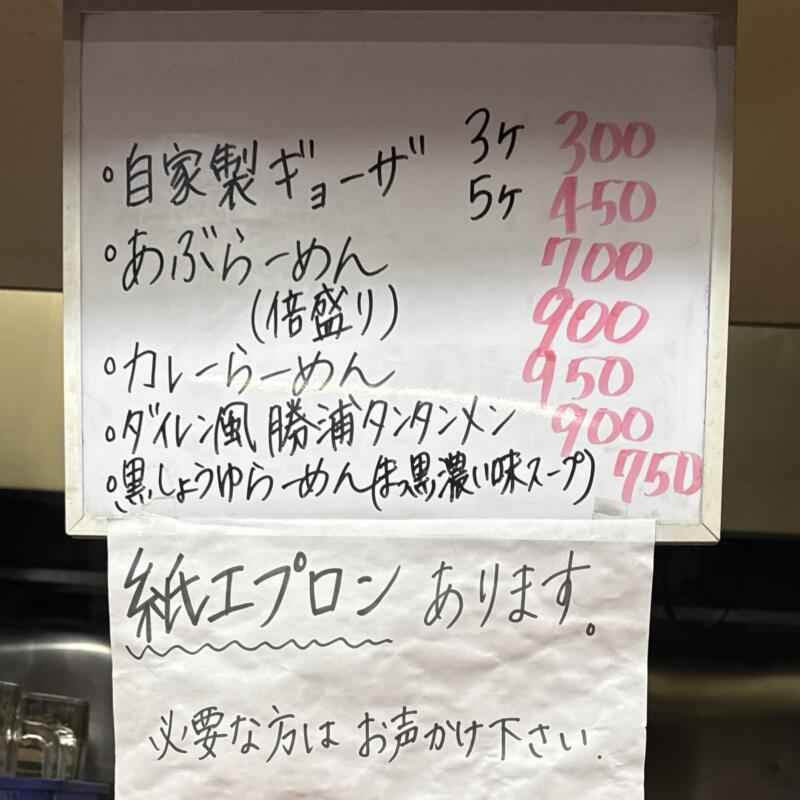 。自家製ギョーザ 3ケ 300
5ケ 450
。あぶらーめん 700
(倍盛り) 900
。カレーらーめん 950
。ダイレン風 勝浦タンタンメン 900
。黒しょうゆらーめん(まっ黒濃い味スープ) 750
紙エプロン あります。
必要な方は お声かけ下さい.